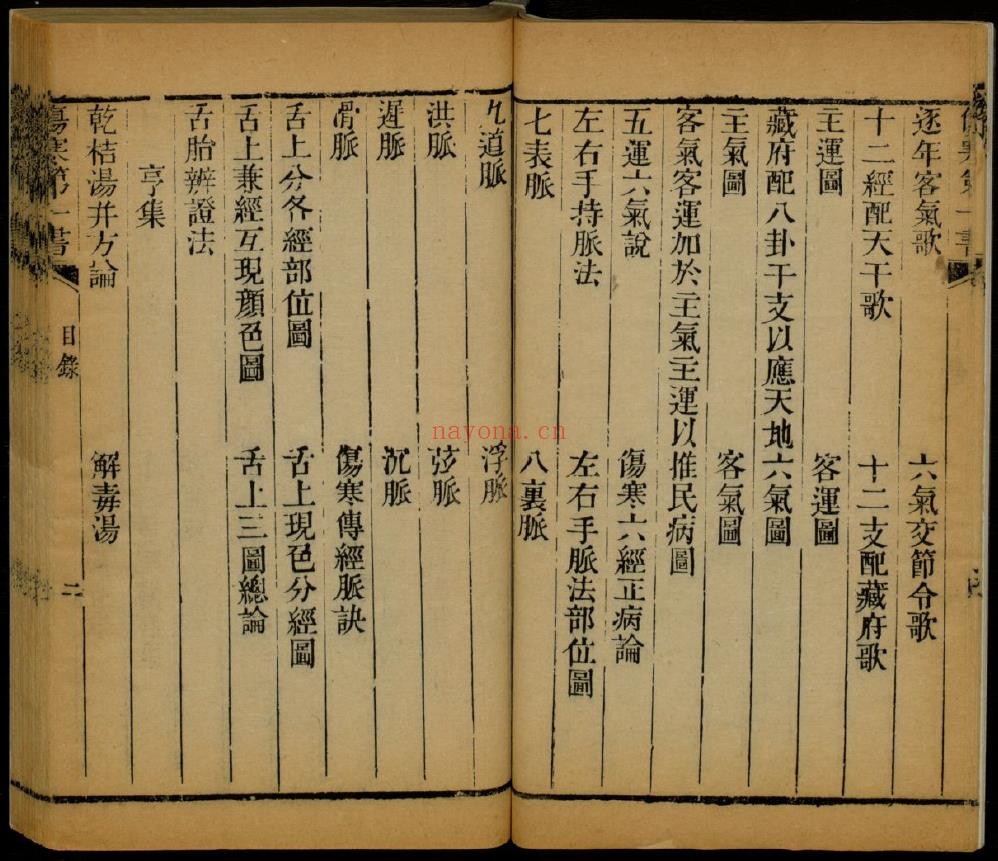 傷寒第一書
逐年客氣歌　六氣交節令歌
十二經配天干歌　十二支配藏府歌
主運圖　客運圖
藏府配八卦干支以應天地六氣圖
主氣圖　客氣圖
客氣客運加於主氣主運以推民病圖
五運六氣說　傷寒六經正病論
左右手持脈法　左右手脈法部位圖
七表脈　八裏脈
九道脈　浮脈
洪脈　弦脈
遲脈　沉脈
滑脈　傷寒傳經脈訣
舌上分各經部位圖　舌上現色分經圖
舌上兼經互現顏色圖　舌上三圖總論
舌胎辨證法
亨集
乾桔湯幷方論　解毒湯
傷寒第一書　目錄　二
nayona.cn